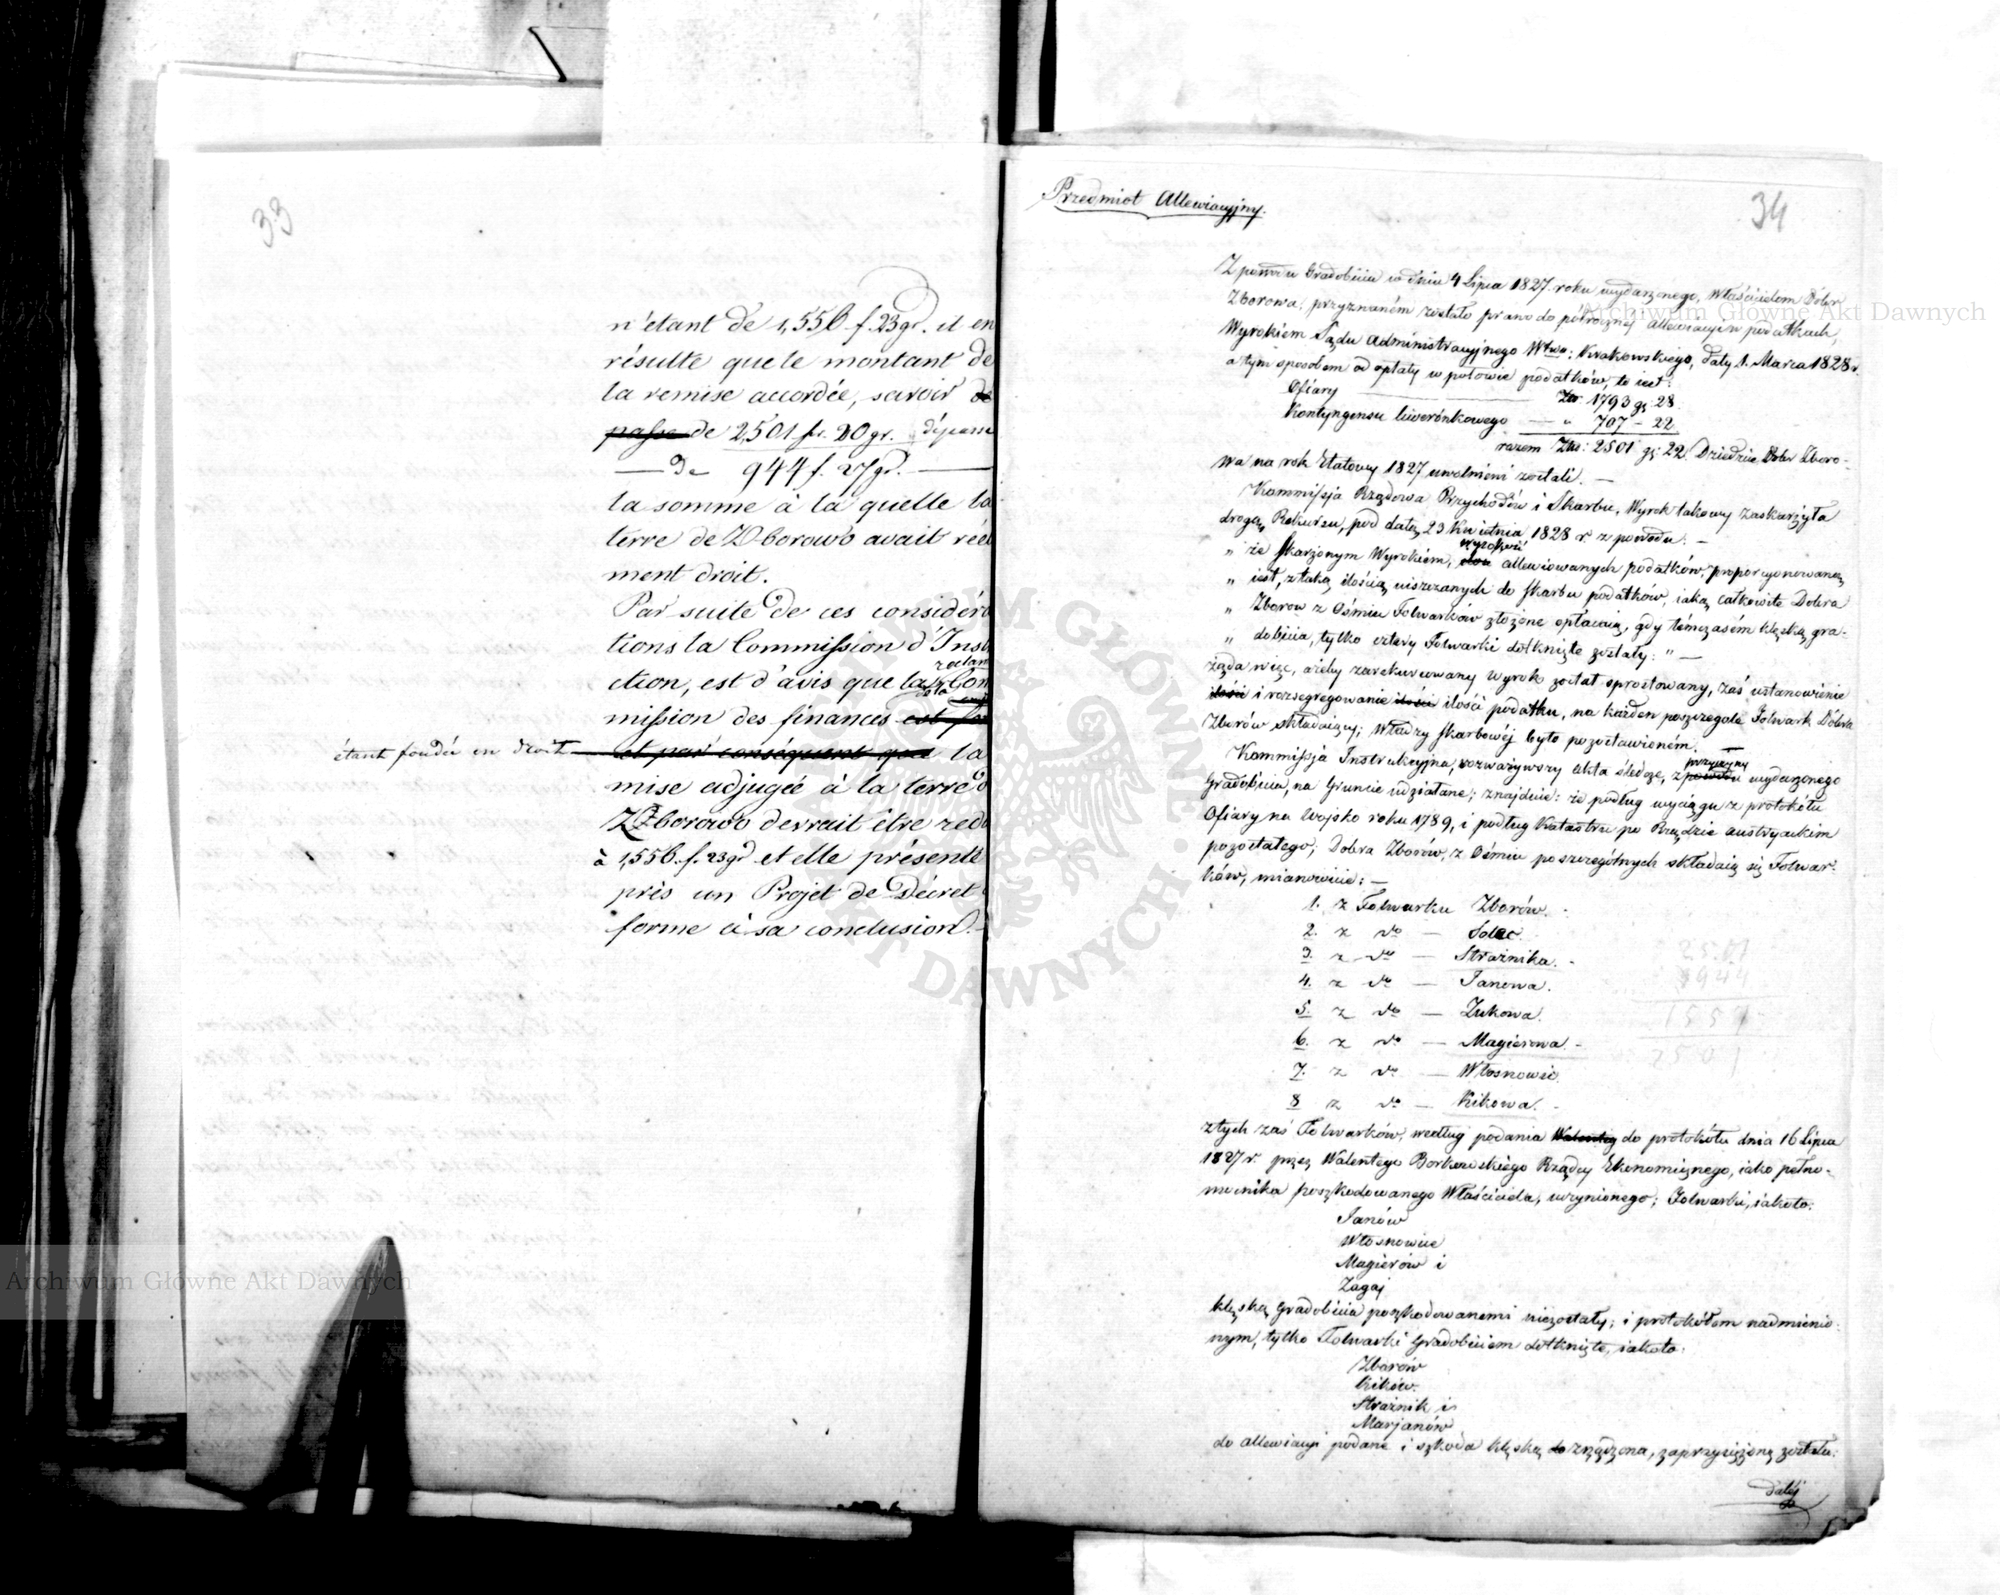 33
n'étant de 1,556 f. 23 gr. il en
résulte que le montant de
la remise accordée, savoir de
passe de 2,501 fr. 20 gr. dépasse
— De 944 f. 27 gr. —
la somme à la quelle la
terre de Zborowo avait réel
ment droit.
Par suite de ces considéra
tions la Commission d'Inst
reclam
ction, est d'avis que la Com
de la
mission des finances est fon
étant fondée en droit
et par conséquent que la
mise adjugée à la terre d
Zborowo devrait être redu
à 1,556. f. 23 gr. et elle présente
près un Projet de Décret
forme à sa conclusion.
Przedmiot Allewiacyjny.
34
Z powodu Gradobicia w dniu 4 Lipca 1827. roku wydarzonego, Właścicielom Dóbr
Zborowa, przyznaném zostało prawo do półrocznej allewiacyi w podatkach,
Wyrokiem Sądu Administracyjnego Wtwa: Krakowskiego, daty 1. Marca 1828 r.
a tym sposobem od opłaty w połowie podatków, to iest:
Ofiary — Złp 1793 gr 28
Kontyngensu liwerónkowego — " 707 - 22
razem Złp: 2501 gr: 22. Dziedzice Dóbr Zboro-
wa na rok Etatowy 1827 uwolnieni zostali. —
Kommissja Rządowa Przychodów i Skarbu, Wyrok takowy zaskarżyła
drogą Rekursu, pod datą 23 Kwietnia 1828 r. z powodu: —
wysokość
" że skarżonym Wyrokiem, allewiowanych podatków, proporcyonowaną
" iest, z taką ilością uiszczanych do skarbu podatków, iaką całkowite Dobra
" Zborow z Ośmiu Folwarków złożone opłacaią, gdy témczasém klęską gra-
" dobicia, tylko cztery Folwarki dotknięte zostały: " —
żąda więc, ażeby zarekurowany Wyrok został sprostowany, zaś ustanowienie
ilości i rozsegregowanie ilości ilości podatku, na każden poszczególe Folwark Dóbra
Zborów składaiący; Władzy skarbowéj było pozostawioném. —
Kommissja Instrukcyjna, rozważywszy Akta śledcze, z powodu wydarzonego
przyczyny
Gradobicia, na Gruncie udziałane; znajduie: że podług wyciągu z protokółu
Ofiary na Wojsko roku 1789, i podług Katastru po Rządzie austryackim
pozostałego; Dobra Zborów, z Ośmiu poszczególnych składaią się Folwar-
ków, mianowicie: —
1. z Folwarku Zborów.
2. z do — Solec.
3. z do — Strażnika.
4. z do — Janowa.
5. z do — Zukowa.
6. z do — Magierowa.
7. z do — Włosnowic.
8 z do — Kikowa.
2501
944
1557
2501
z tych zaś Folwarków, według podania Walentég do protokółu dnia 16 Lipca
1827 r. przez Walentego Borkowskiego Rządcy Ekonomicznego, iako pełno-
mocnika poszkodowanego Właściciela, uczynionego; Folwarki, iakoto:
Janów
Włosnowice
Magierów i
Zagaj
klęską Gradobicia poszkodowanemi niezostały; i protokółem nadmienio-
nym, tylko Folwarki Gradobiciem dotknięte, iakoto:
Zborów
Kików.
Strażnik i
Marjanów
do allewiacyi podane i szkoda klęską do zrządzona, zaprzysiężoną została:
daléj
Archiwum Główne Akt Dawnych
Archiwum Główne Akt Dawnych